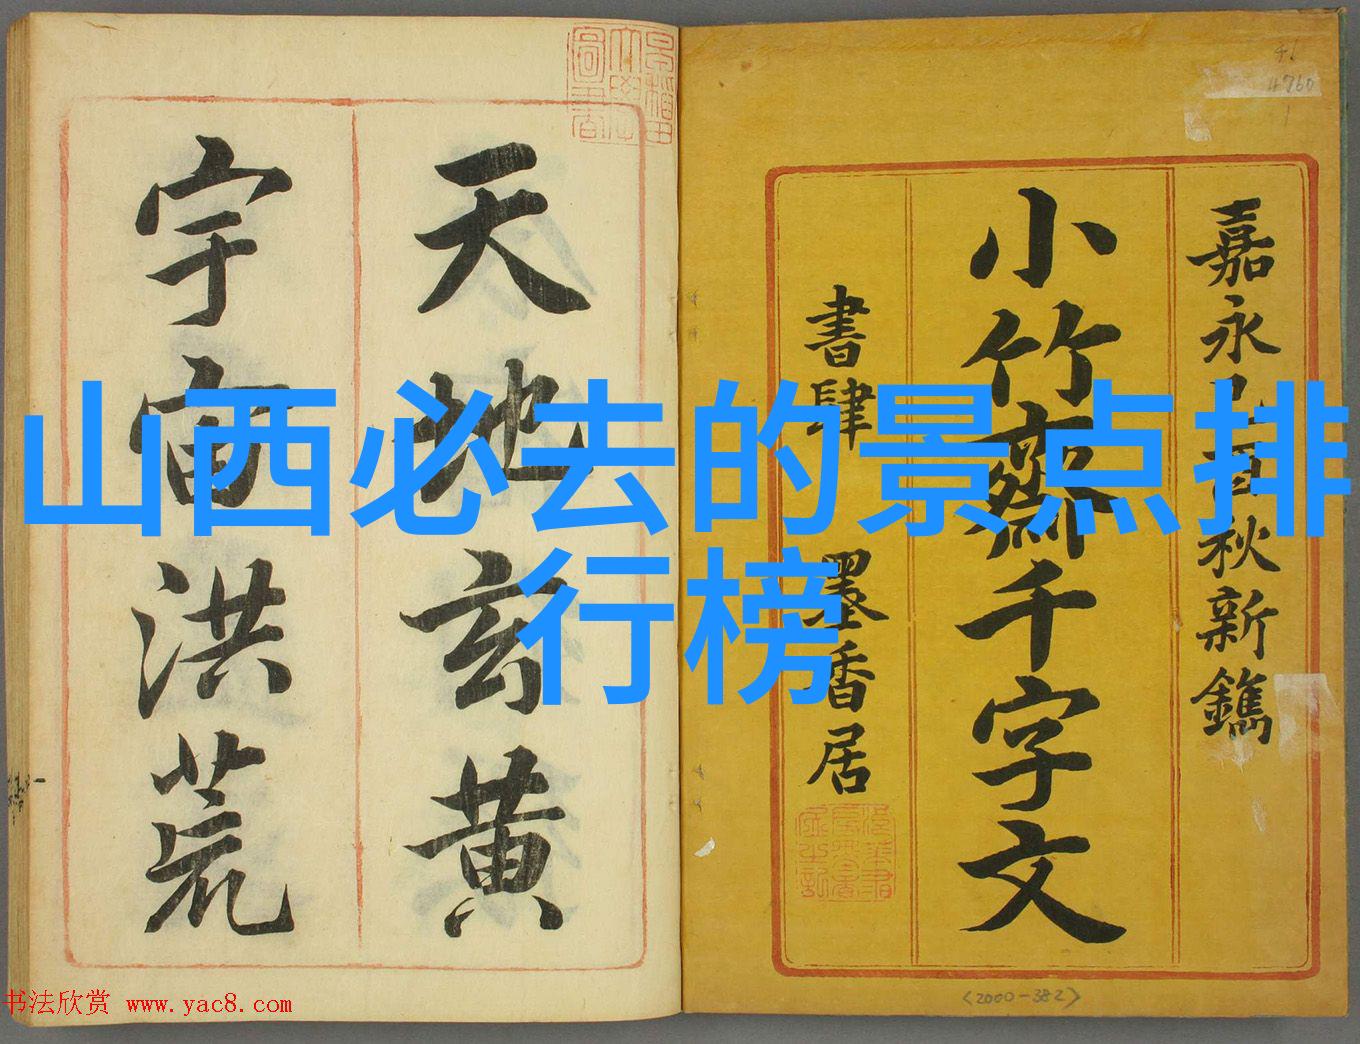 山西必去的景点排
行榜
嘉永己酉秋新鐫
小竹齋千字文
書肆 墨香居
天地玄黃
宇宙洪荒
46
4760
<2000-382>
书法欣赏 www.yac8.com